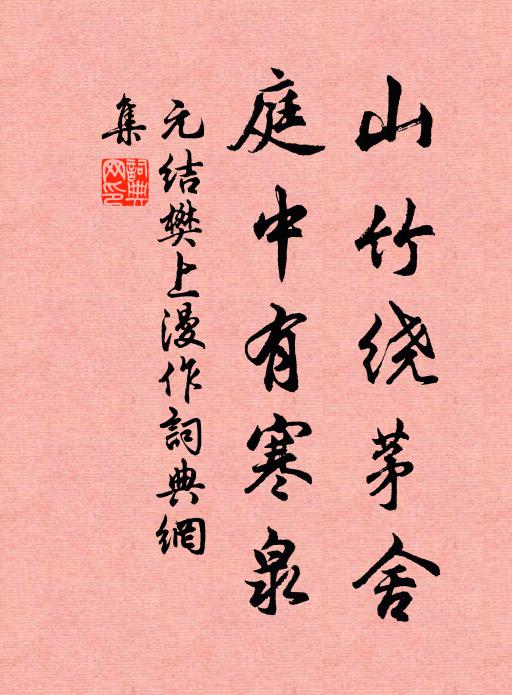 山竹绕茅舍
庭中有寒泉
元结樊上漫作詞典網
集
詞典網印